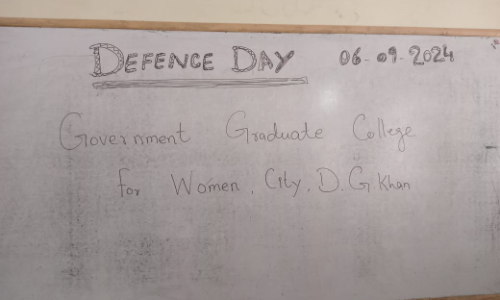 DEFENCE DAY 06-09-2024
Government Graduate College
for Women, City, D.G.Khan